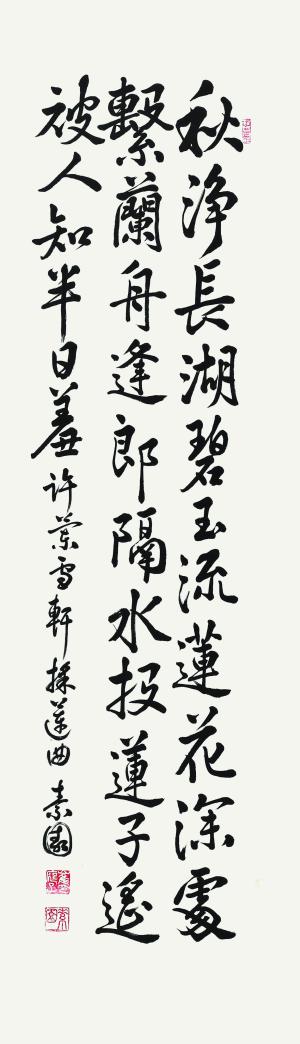 秋浄長湖碧玉流蓮花深處
繫蘭舟逢郎隔水投蓮子遙
被人知半日羞 許蘭雪軒 採蓮曲 素園